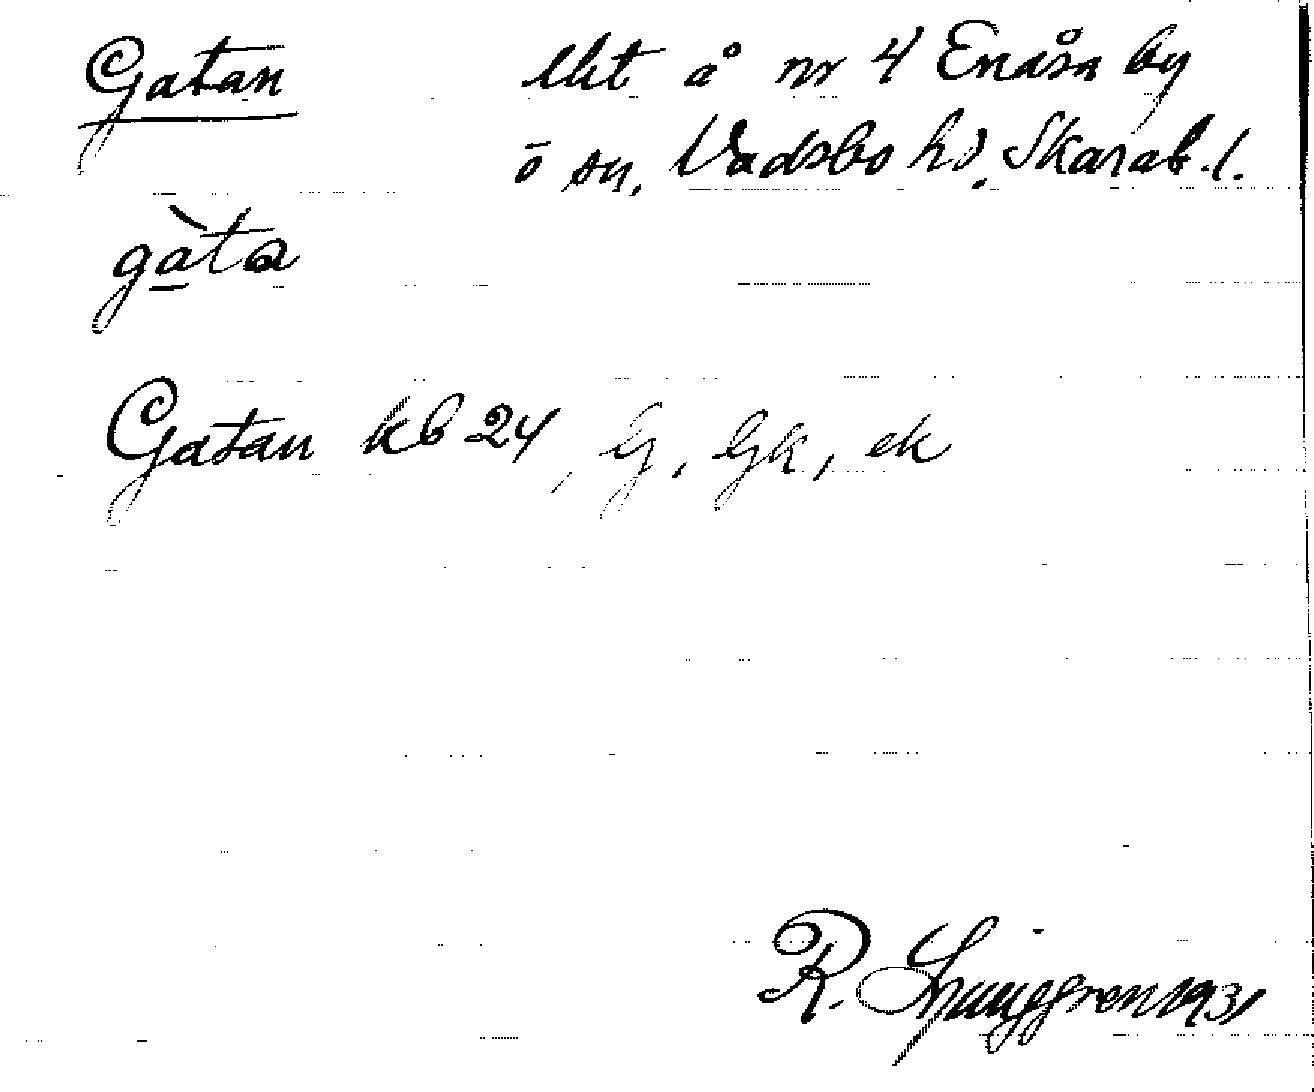 Gatan lht å nr 4 Enåsa by
ō sn, Vadsbo hd, Skarab. l.
gàta
Gatan kb 24, G, Gk, ek
R. Ljunggren 1931